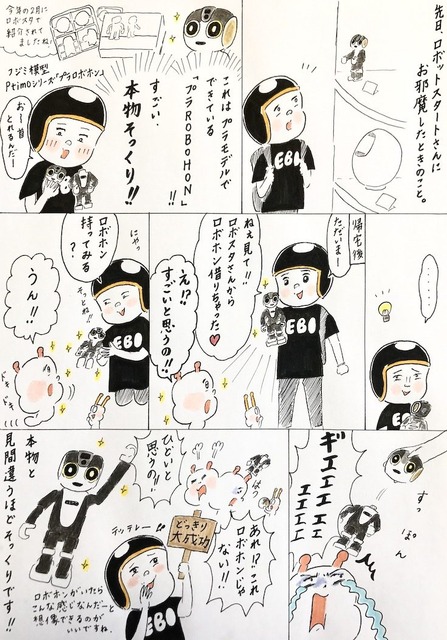 先日、ロボットスタートさんに
お邪魔したときのこと。
EBI
これはプラモデルで
できている
「プラROBOHON」!!
すごい、
本物そっくり!!
今年の2月に
ロボスタで
紹介されて
ましたね!
フジミ模型
Ptimoシリーズ「プラロボホン」
お〜首
とれるんだー
……
EBI
帰宅後
ただいまー
ねえ見て!!
ロボスタさんから
ロボホン借りちゃった♥
EBI
え!?
すごいと思うの!!
にやっ
ロボホン
持ってみる
?
そっとね
EBI
うん!!
ドキ
ドキ
すっ
ぽん
ギエエエエエ
エエエエ
ぽっ
あれ!?これ
ロボホンじゃ
ない!!
ひどいと
思うの!!
どっきり
大成功
テッテレー!!
EBI
本物と
見間違うほどそっくりです!!
ロボホンがいたら
こんな感じなんだーと
想像できるのが
いいですね。